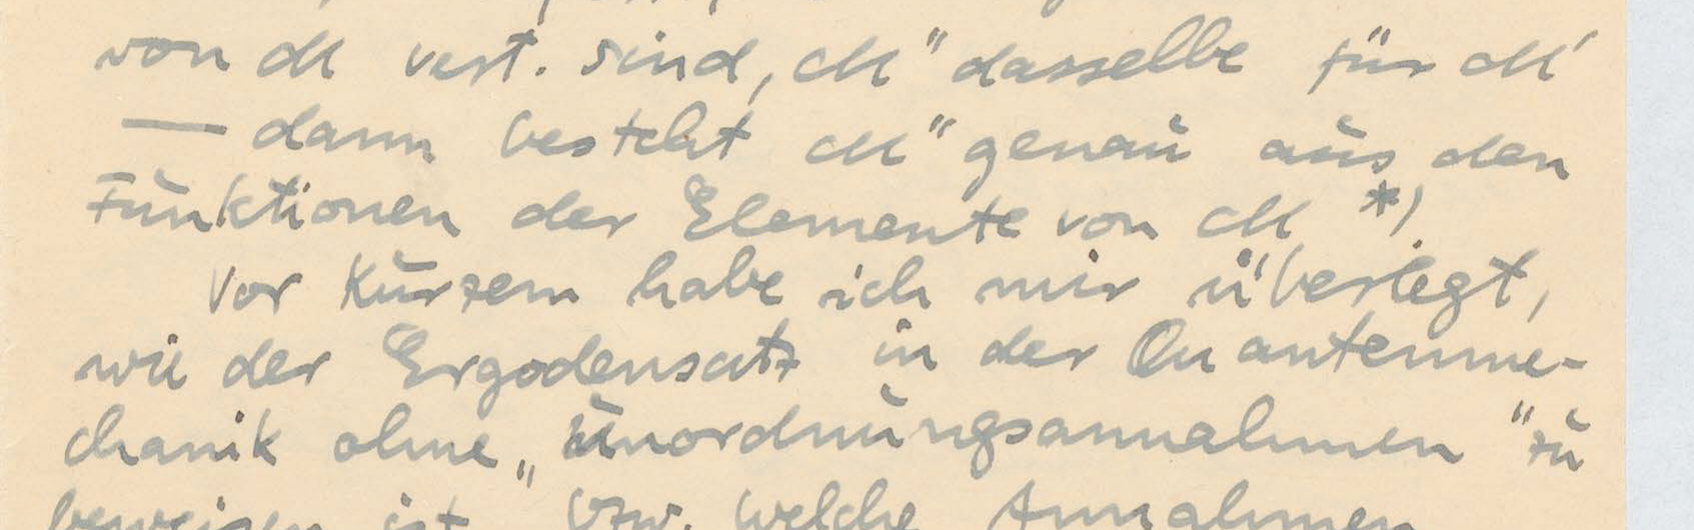 von M vert. sind, M" dasselbe für M'
— dann besteht M" genau aus den
Funktionen der Elemente von M *).
Vor Kurzem habe ich mir überlegt,
wie der Ergodensatz in der Quantenme-
chanik ohne „Unordnungsannahmen" zu
beweisen ist, bzw. welche Annahmen